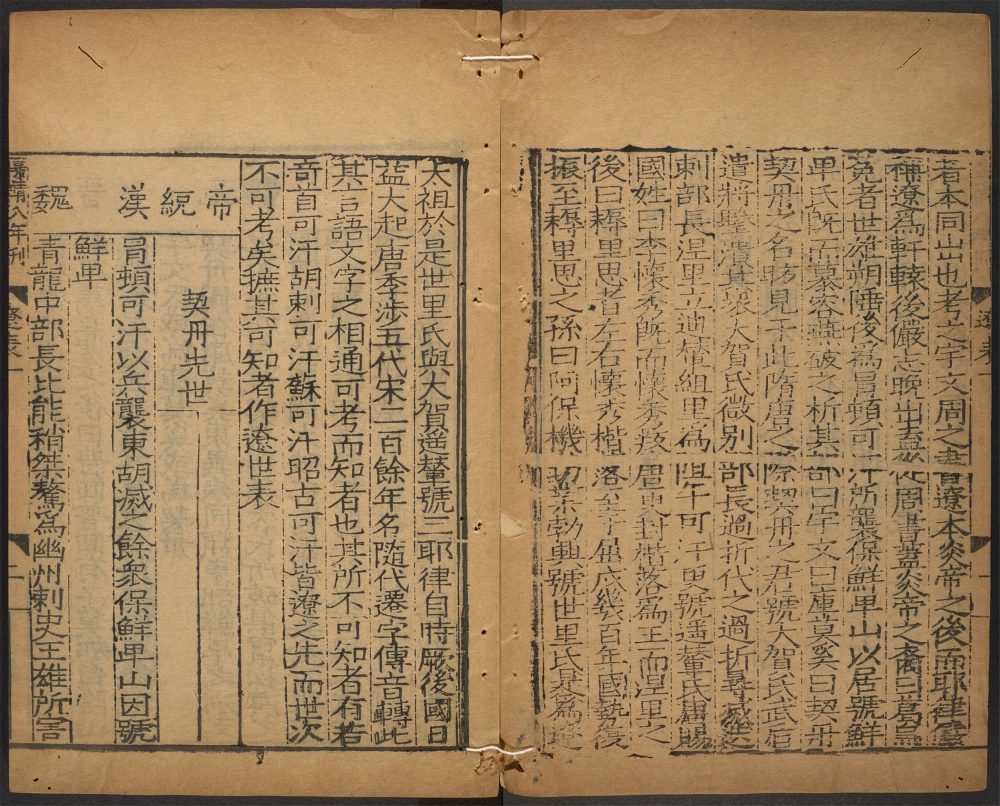 者本同出也考之宇文周之書遼本炎帝之後而耶律儼
稱遼為軒轅後儼志晚出盍從周書蓋炎帝之裔曰葛烏
菟者世雄朔陲後為冒頓可汗所襲保鮮卑山以居號鮮
卑氏既而慕容燕破之析其部曰宇文曰庫莫奚曰契丹
契丹之名昉見于此隋唐之際契丹之君號大賀氏武后
遣將擊潰其衆大賀氏微別部長過折代之過折尋滅迭
剌部長涅里立迪輦組里為阻午可汗更號遙輦氏唐賜
國姓曰李懷秀既而懷秀叛唐更封楷落為王而涅里之
後曰耨里思者左右懷秀楷落至于屈戍幾百年國勢復
振至耨里思之孫曰阿保機功業勃興號世里氏是為遼
遼 表
一
太祖於是世里氏與大賀遙輦號三耶律自時厥後國日
益大起唐季涉五代宋二百餘年名隨代遷字傳音轉此
其言語文字之相通可考而知者也其所不可知者有若
奇首可汗胡剌可汗蘇可汗昭古可汗皆遼之先而世次
不可考矣摭其可知者作遼世表
帝統
契丹先世
漢
冒頓可汗以兵襲東胡滅之餘衆保鮮卑山因號
鮮卑
魏
青龍中部長比能稍桀驁為幽州刺史王雄所害
嘉靖八年刊
遼表一
二